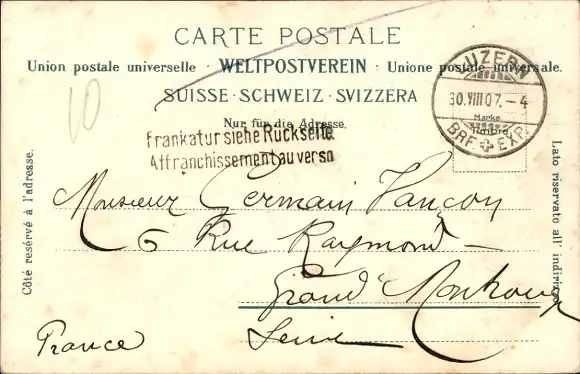 CARTE POSTALE
Union postale universelle · WELTPOSTVEREIN · Unione postale universale.
SUISSE · SCHWEIZ · SVIZZERA
Nur für die Adresse.
Frankatur siehe Rückseite.
Affranchissement au verso
10
LUZERN
30.VIII 07. – 4
BRF EXP.
Marke
Timbre
Côté reservé à l'adresse.
Lato riservato all' indirizzo
Monsieur Germain Vançon
6 Rue Raymond
Grand Montrouge
Seine
France